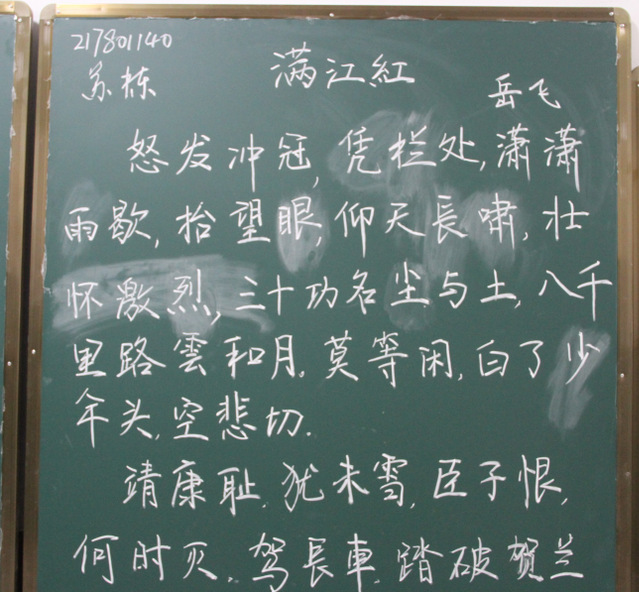 217801140
苏栋
满江紅
岳飞
怒发冲冠,凭栏处,潇潇
雨歇,抬望眼,仰天長啸,壮
怀激烈,三十功名尘与土,八千
里路雲和月.莫等闲,白了少
年头,空悲切.
靖康耻.犹未雪,臣子恨,
何时灭.驾長車.踏破贺兰